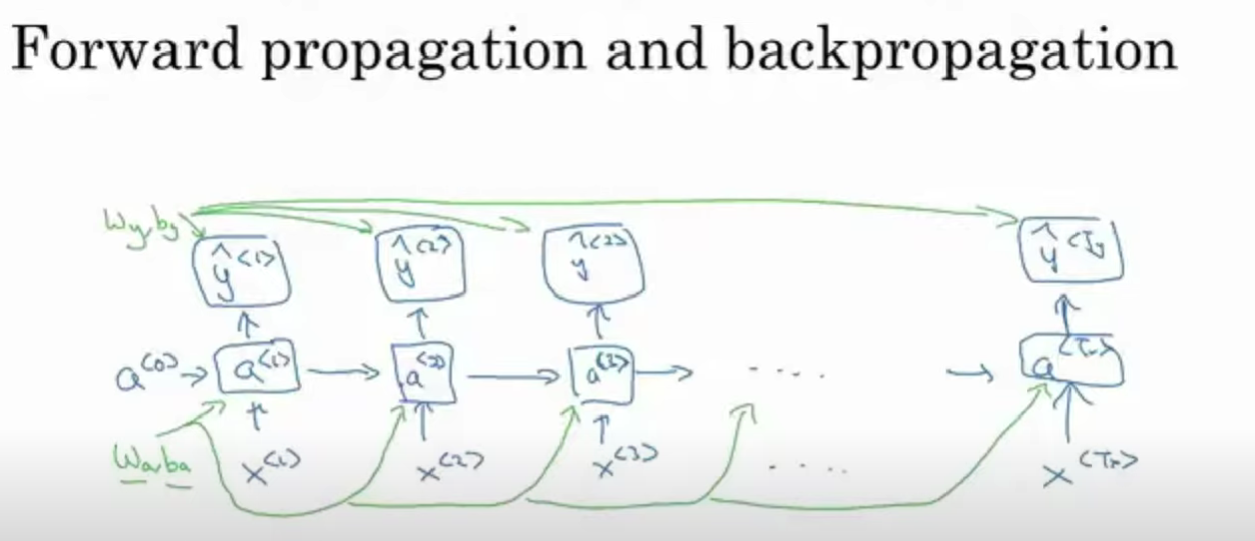 Forward propagation and backpropagation
Wy,by
ŷ<1> ŷ<2> ŷ<3> ŷ<Ty
a<0> a<1> a<2> a<3> .... a<Tx>
Wa,ba x<1> x<2> x<3> .... x<Tx>